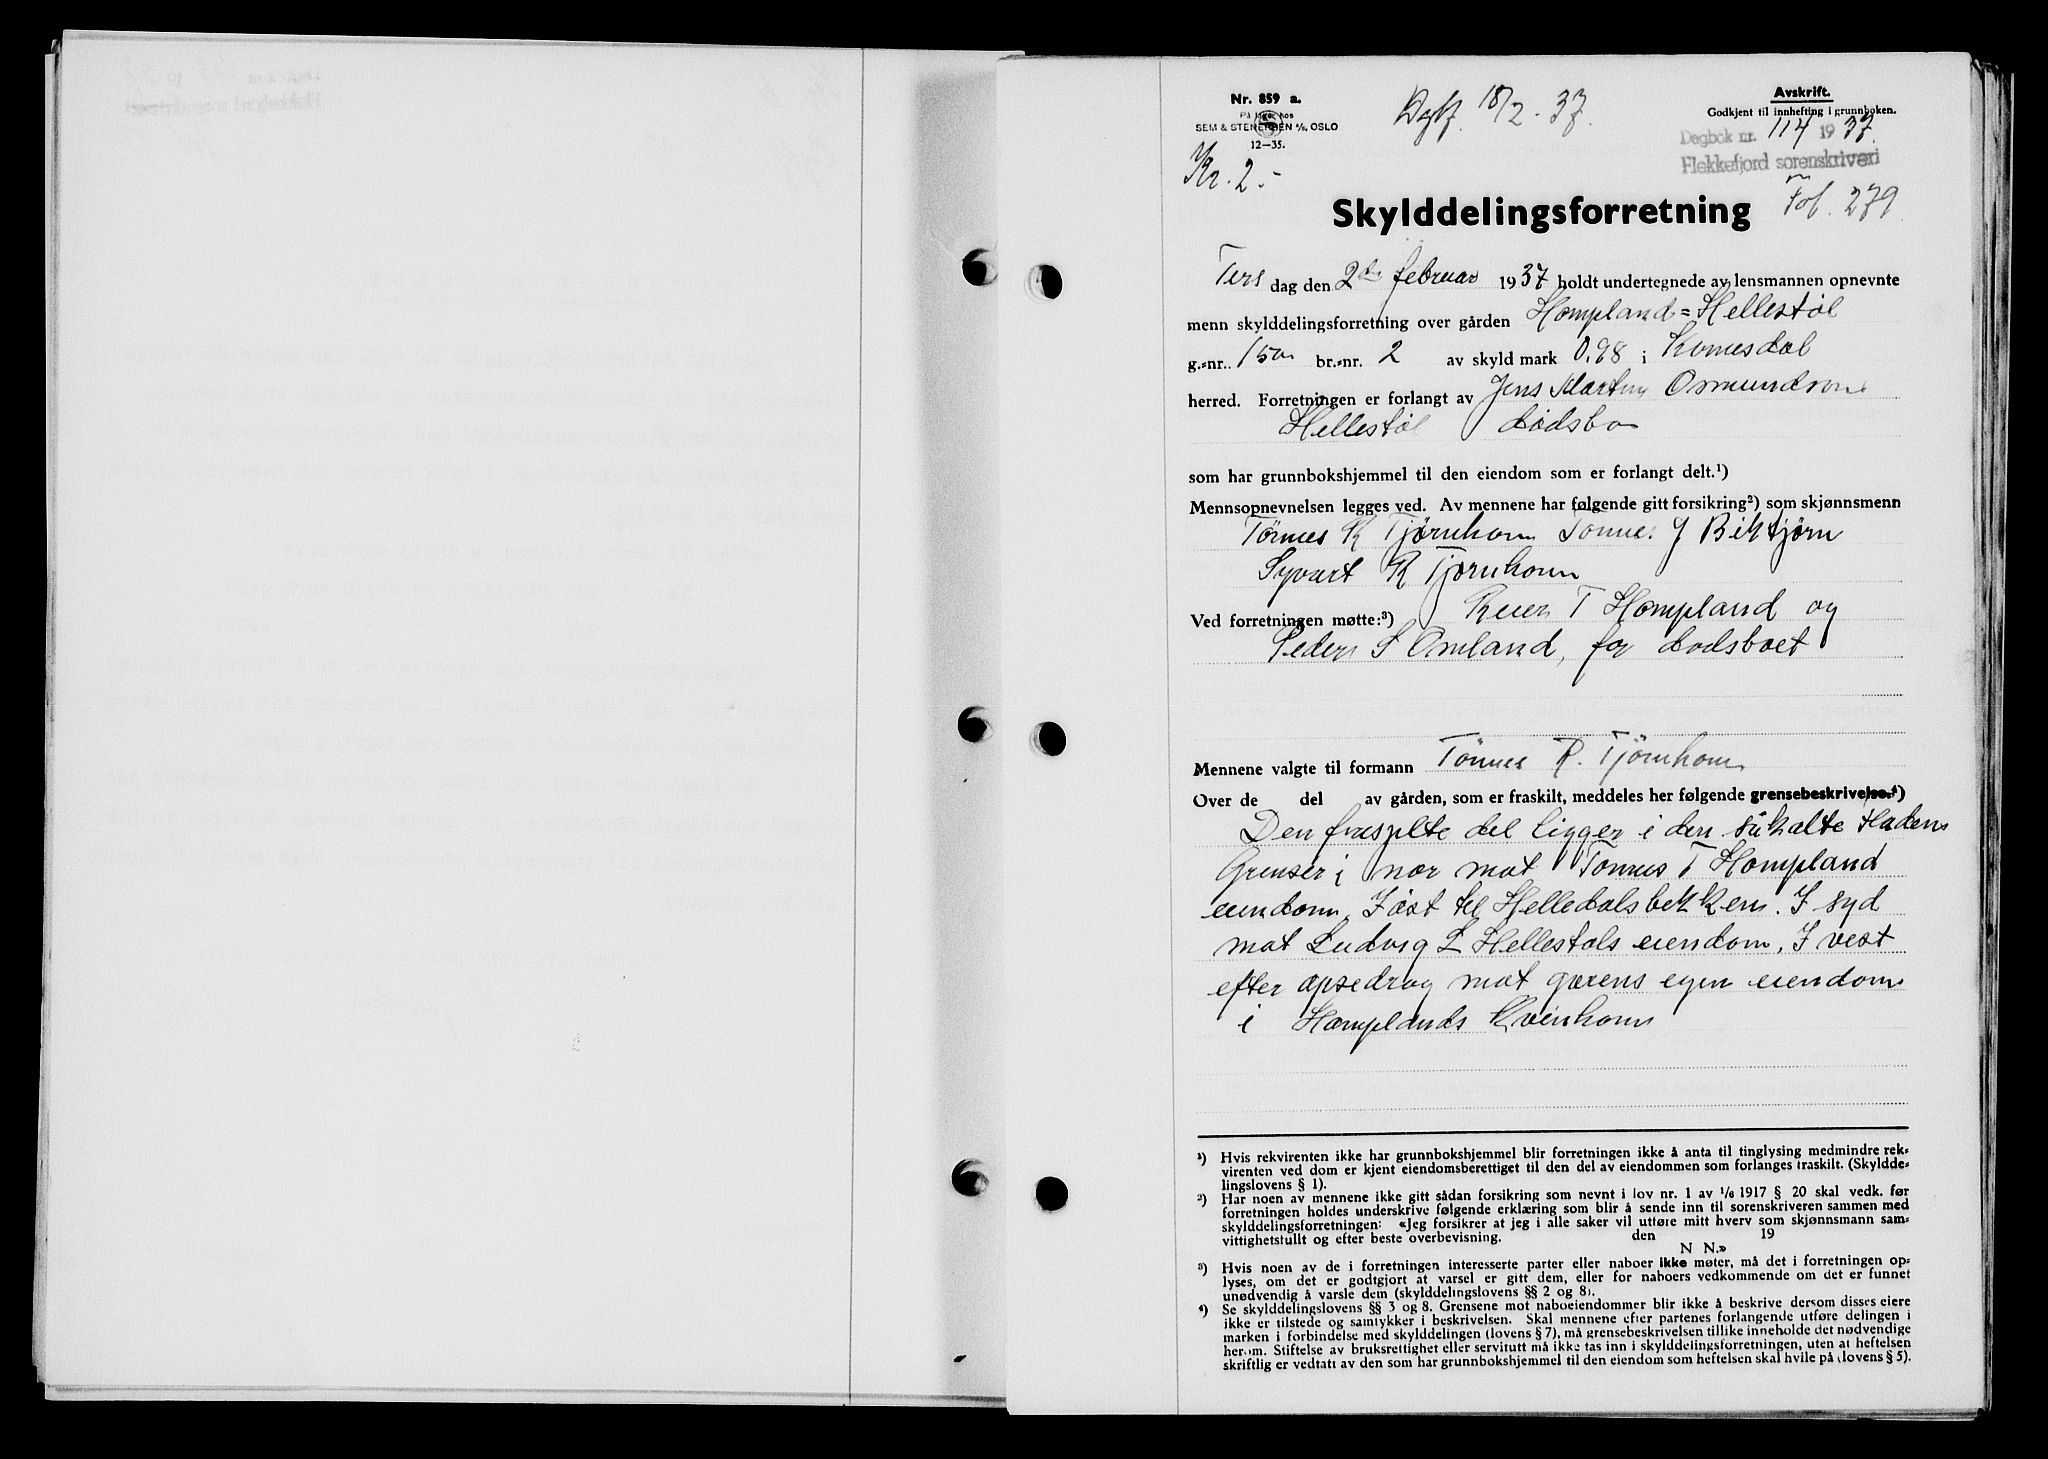 Nr. 859 a.
På lager hos
SEM & STENERSEN A/S, OSLO
12-35.
Dagbf. 18/2-37.
Avskrift.
Godkjent til innhefting i grunnboken.
Dagbok nr. 114 1937
Flekkefjord sorenskriveri
Kr. 2.-
Fol. 279.
Skylddelingsforretning
Tirs dag den 2de februar 1937 holdt undertegnede av lensmannen opnevnte
menn skylddelingsforretning over gården Hompland=Hellestøl
g.=nr. 150 br.=nr. 2 av skyld mark 0,98 i
herred. Forretningen er forlangt av Jens Martin Osmundsen
Hellestøl dødsbo
som har grunnbokshjemmel til den eiendom som er forlangt delt.¹)
Mennsopnevnelsen legges ved. Av mennene har følgende gitt forsikring²) som skjønnsmenn
Tønnes R Tjørnhom Tønnes J Bektjørn
Syvert R Tjørnhom
Ved forretningen møtte:³) Reier T Hompland og
Peder S Omland, for dødsboet
Mennene valgte til formann Tönnes R. Tjörnhom
Over de del av gården, som er fraskilt, meddeles her følgende grensebeskrivelse.⁴)
Den fraspilte del ligger i den såkalte Haden
Grenser i nor mot Tønnes T Hompland
eiendom, I øst til Helledalsbekken. I syd
mot Ludvig L Hellestøls eiendom, I vest
efter opsedrag mot gærens egen eiendom
i Homplands Kvinhom
¹) Hvis rekvirenten ikke har grunnbokshjemmel blir forretningen ikke å anta til tinglysing medmindre rek=
virenten ved dom er kjent eiendomsberettiget til den del av eiendommen som forlanges fraskilt. (Skyldde=
lingslovens § 1).
²) Har noen av mennene ikke gitt sådan forsikring som nevnt i lov nr. 1 av 1/6 1917 § 20 skal vedk. før
forretningen holdes underskrive følgende erklæring som blir å sende inn til sorenskriveren sammen med
skylddelingsforretningen: «Jeg forsikrer at jeg i alle saker vil utføre mitt hverv som skjønnsmann sam=
vittighetsfullt og efter beste overbevisning. den 19
N N.»
³) Hvis noen av de i forretningen interesserte parter eller naboer ikke møter, må det i forretningen op=
lyses, om det er godtgjort at varsel er gitt dem, eller for naboers vedkommende om det er funnet
unødvendig å varsle dem (skylddelingslovens §§ 2 og 8).
⁴) Se skylddelingslovens §§ 3 og 8. Grensene mot naboeiendommer blir ikke å beskrive dersom disses eiere
ikke er tilstede og samtykker i beskrivelsen. Skal mennene efter partenes forlangende utføre delingen i
marken i forbindelse med skylddelingen (lovens § 7), må grensebeskrivelsen tillike inneholde det nødvendige
herom. Stiftelse av bruksrettighet eller servitutt må ikke tas inn i skylddelingsforretningen, uten at heftelsen
skriftlig er vedtatt av den som har grunnbokshjemmel til den eiendom som heftelsen skal hvile på (lovens § 5).